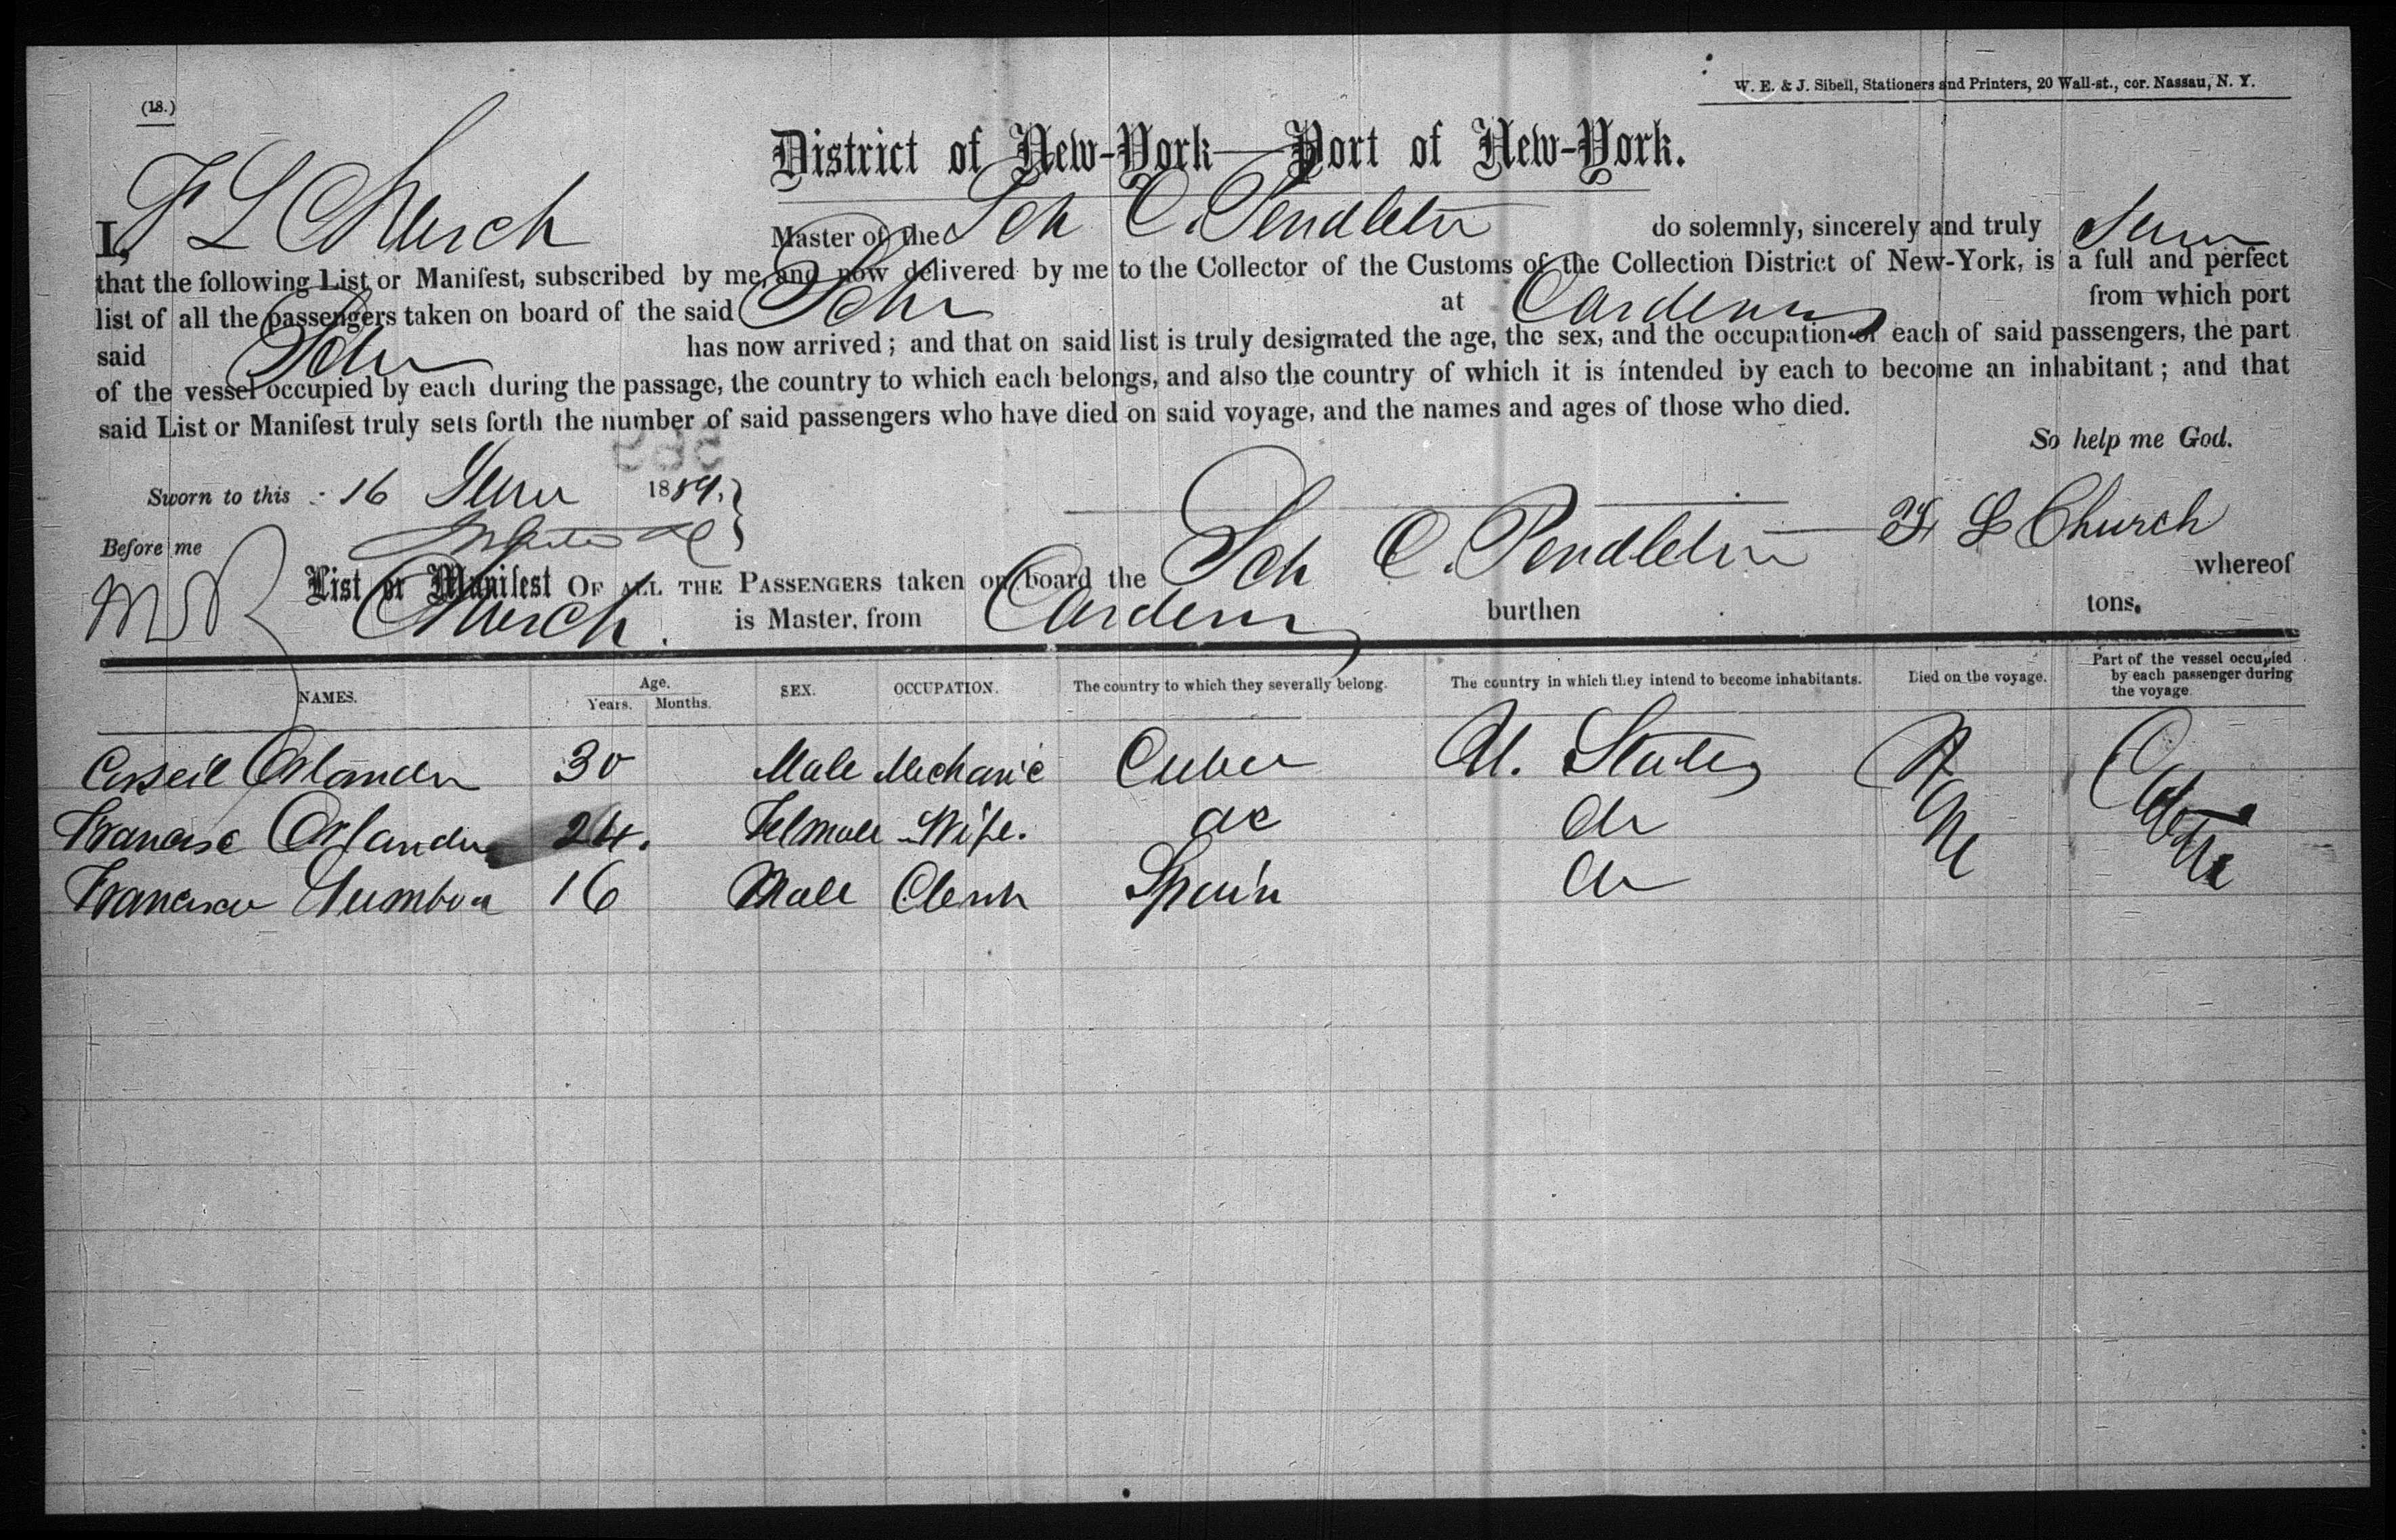 (18.)
W. E. & J. Sibell, Stationers and Printers, 20 Wall-st., cor. Nassau, N. Y.
District of New-York—Port of New-York.
I, F L Church Master of the Sch C. Pendleton do solemnly, sincerely and truly
that the following List or Manifest, subscribed by me, and now delivered by me to the Collector of the Customs of the Collection District of New-York, is a full and perfect
list of all the passengers taken on board of the said Schr at Cardenas from which port
said Schr has now arrived; and that on said list is truly designated the age, the sex, and the occupation of each of said passengers, the part
of the vessel occupied by each during the passage, the country to which each belongs, and also the country of which it is intended by each to become an inhabitant; and that
said List or Manifest truly sets forth the number of said passengers who have died on said voyage, and the names and ages of those who died.
So help me God.
Sworn to this 16 June 1889.
F L Church
Before me
List or Manifest OF ALL THE PASSENGERS taken on board the Sch C. Pendleton whereof
Church. is Master, from Cardenas burthen tons.
NAMES. Age. Years. Months. SEX. OCCUPATION. The country to which they severally belong. The country in which they intend to become inhabitants. Died on the voyage. Part of the vessel occupied by each passenger during the voyage
Orlander 30 Male Mechanic Cuba U. States None Cabin
Orlander 24. Wife. do do
Francisco 16 Male Clerk Spain do